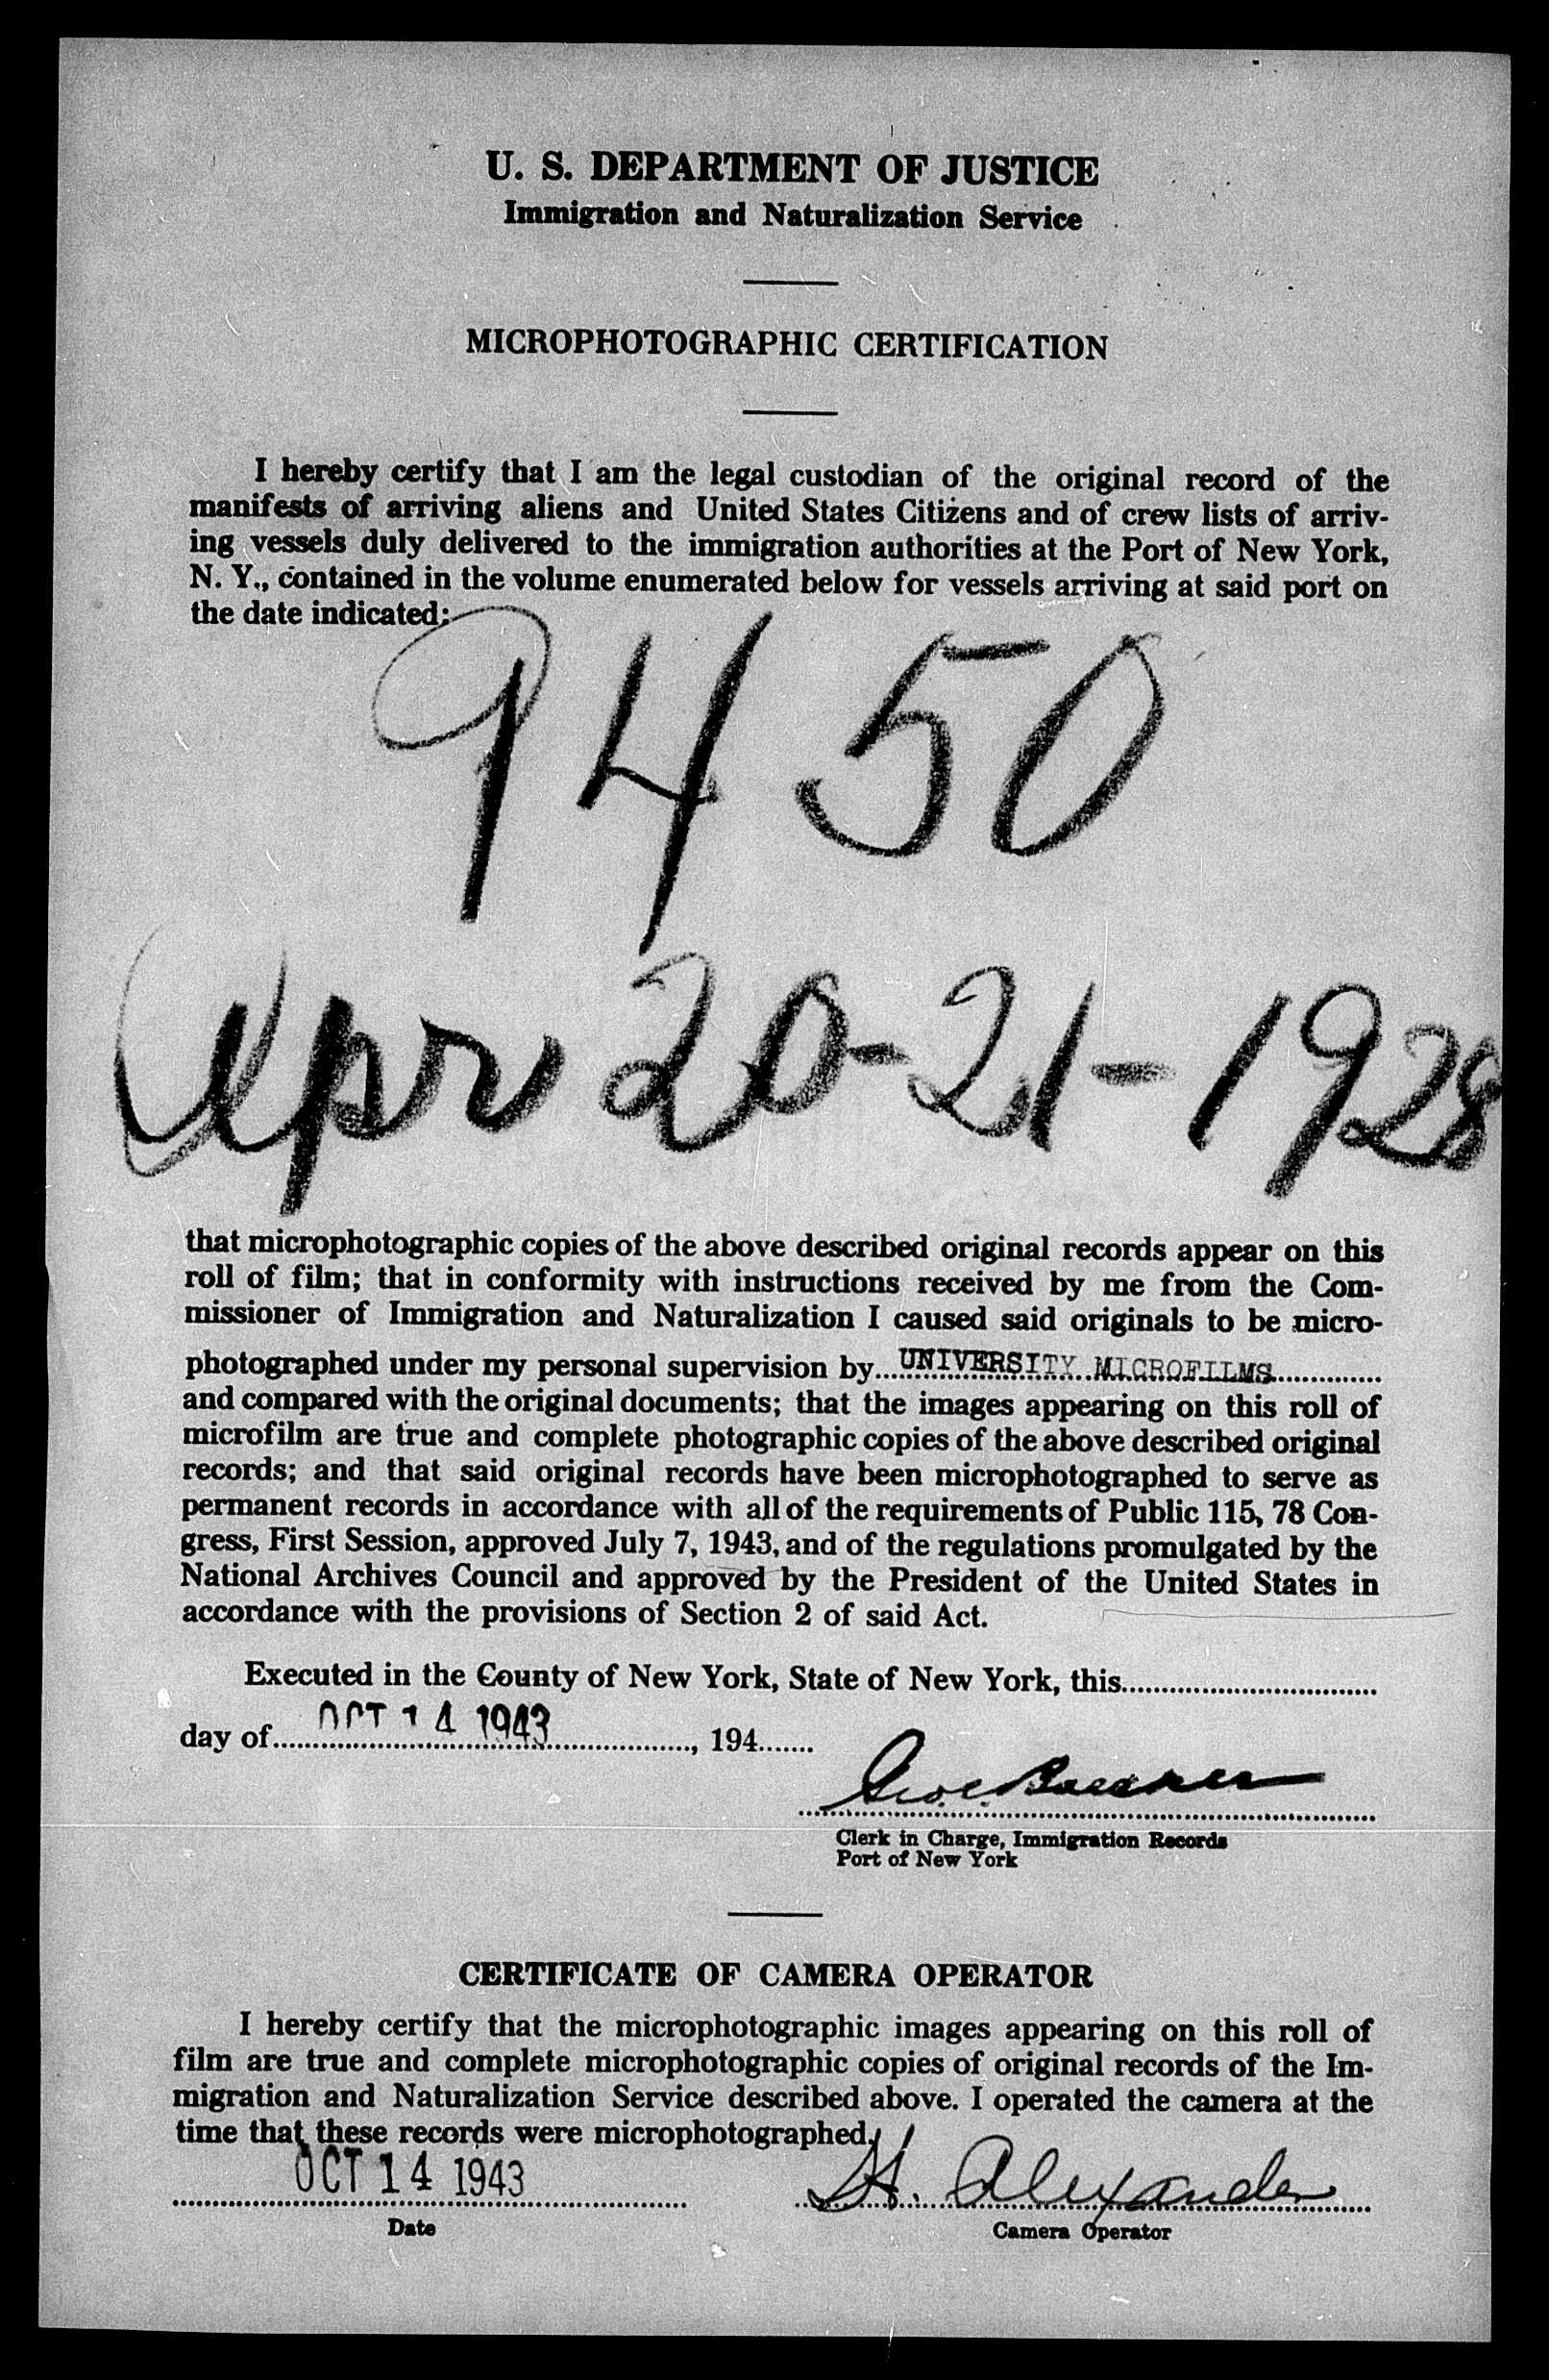 U. S. DEPARTMENT OF JUSTICE
Immigration and Naturalization Service
MICROPHOTOGRAPHIC CERTIFICATION
I hereby certify that I am the legal custodian of the original record of the
manifests of arriving aliens and United States Citizens and of crew lists of arriv-
ing vessels duly delivered to the immigration authorities at the Port of New York,
N. Y., contained in the volume enumerated below for vessels arriving at said port on
the date indicated:
9450
Apr 20-21-1928
that microphotographic copies of the above described original records appear on this
roll of film; that in conformity with instructions received by me from the Com-
missioner of Immigration and Naturalization I caused said originals to be micro-
photographed under my personal supervision by UNIVERSITY MICROFILMS
and compared with the original documents; that the images appearing on this roll of
microfilm are true and complete photographic copies of the above described original
records; and that said original records have been microphotographed to serve as
permanent records in accordance with all of the requirements of Public 115, 78 Con-
gress, First Session, approved July 7, 1943, and of the regulations promulgated by the
National Archives Council and approved by the President of the United States in
accordance with the provisions of Section 2 of said Act.
Executed in the County of New York, State of New York, this
day of OCT 14 1943, 194
Clerk in Charge, Immigration Records
Port of New York
CERTIFICATE OF CAMERA OPERATOR
I hereby certify that the microphotographic images appearing on this roll of
film are true and complete microphotographic copies of original records of the Im-
migration and Naturalization Service described above. I operated the camera at the
time that these records were microphotographed.
OCT 14 1943 H. Alexander
Date Camera Operator